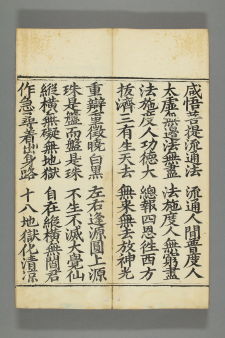 感悟菩提流通法　流通人間普度人
太虛無邊法無盡　法施度人無窮盡
法施度人功德大　總報四恩徃西方
拔濟三有生天去　無來無去放神光
重辯重徵曉白黒　左右逢源圓上源
珠是盤而盤是珠　不生不滅大覺仙
縱橫無礙無地獄　自在縱橫無閻君
作急尋着出身路　十八地獄化清涼